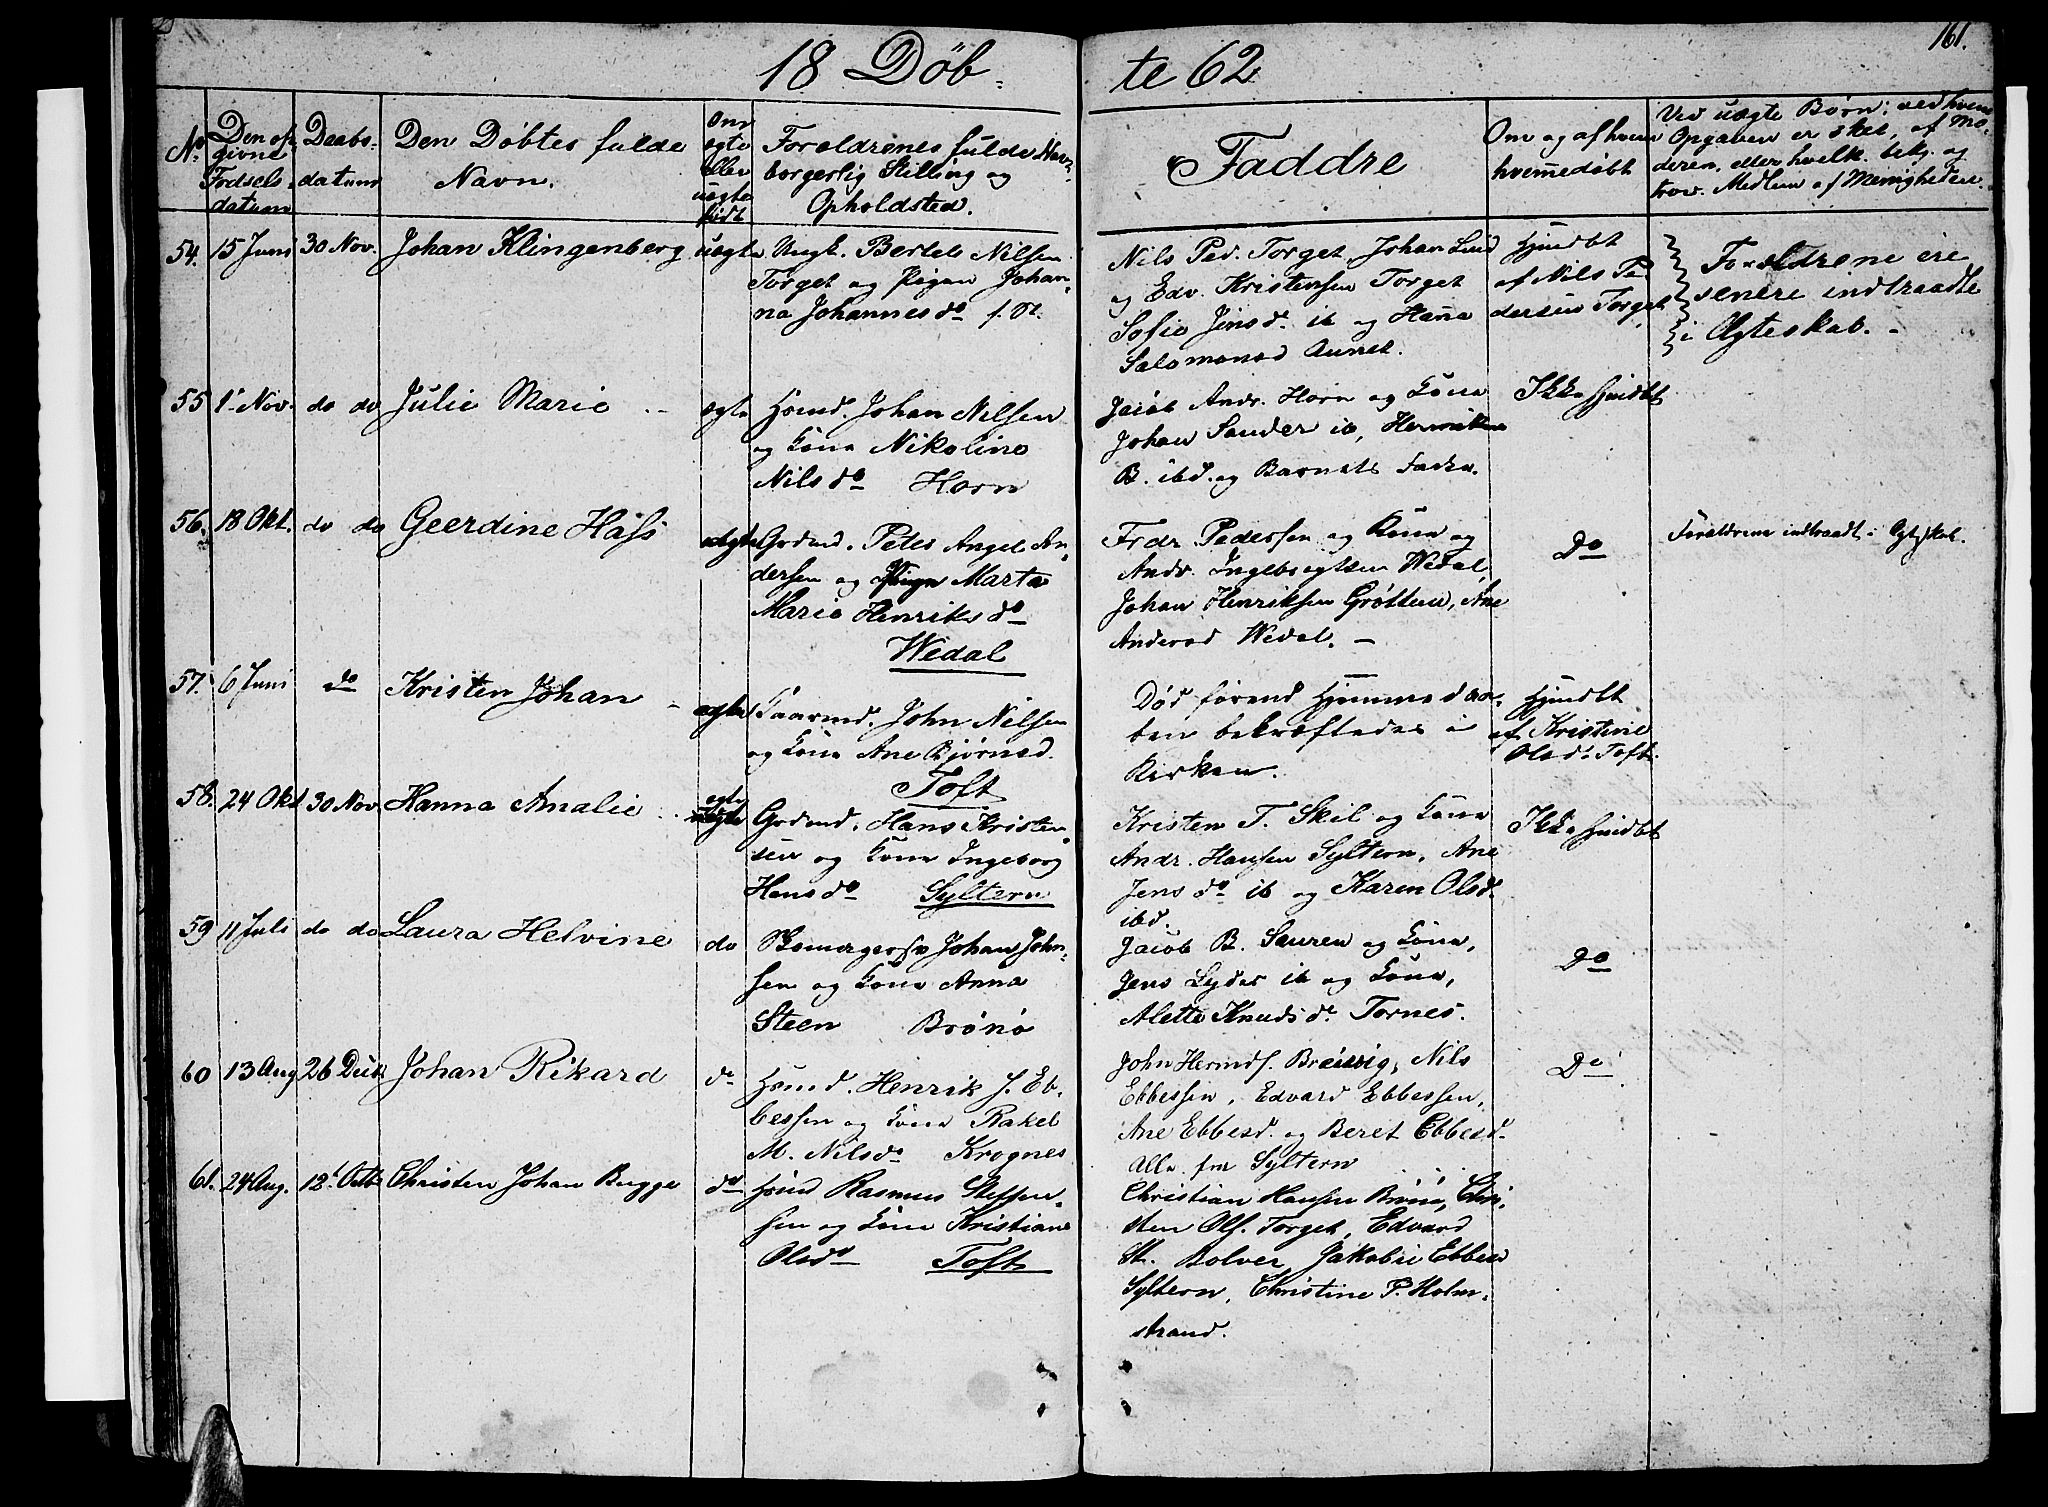 161.
18 Døb-
te 62
No
Den op-
givne
Fødsels-
datum
Daabs-
datum
Den Døbtes fulde
Navn.
Om
ægte
eller
uægte
født
Forældrenes fulde Navn,
borgerlig Stilling og
Opholdsted.
Faddre
Om og af hvem
hjemmedøbt
Ved uægte Børn: ved hvem
Opgaven er skeet, af Mo-
deren, eller hvilk. bekj. og
trov. Medlem af Menigheden.
54. 15 Juni 30 Nov. Johan Klingenberg uægte
Ungk. Bertels Nilsen
Torget og Pigen Johan-
na Johannesdo
Nils Ped. Torget, Johan Lind
og Edv. Kristensen Torget
Sofie Jensd. ib og Hanna
Salomonsd Aunet.
Hjmdbt
af Nils Pe
dersen Torget
Forældrene ere
senere indtraadte
i Ægteskab. -
55 1 Nov. do do Julie Marie - ægte
Hsmd. Johan Nilsen
og Kone Nikoline
Nilsdo Horn
Jacob Andr. Horn og Kone
Johan Sander ib, Henrikke
B. ibd. og Barnets Fader.
Ikke hjmdbt
56. 18 Okt. do do Geerdine Hass
uægte
Godmd. Peter Angel An-
dersen og Pigen Marta
Marie Henriksdo
Wedal
Frdr Pedersen og Kone og
Andr. Ingebrigtsen Wedal,
Johan Henriksen Grøttem, Ane
Andersd Wedal. -
Do
Forældrene indtraadt i Ægtskab.
57. 6 Juni do Kristen Johan - ægte
Gaarmd. John Nilsen
og Kone Ane Bjørnsd.
Toft
Død førend Hjemmedaa-
ben bekræftedes i
Kirken.
Hjmdbt
af Kristine
Olsd. Toft.
58. 24 Okt 30 Nov. Hanna Amalie - ægte
Godmd. Hans Kristen-
sen og Kone Ingeborg
Hansdo Syltern
Kristen T. Skil og Kone
Andr. Hansen Syltern, Ane
Jensdo ib og Karen Olsd.
ibd.
Ikke hjmdbt
59 11 Juli do do Laura Helvine do
Skomagersv Johan John-
sen og Kone Anna
Steen Brønø
Jacob B. Sauren og Kone,
Jens Lyder ib og Kone,
Alette Knudsd. Tornes.
Do
60 13 Aug 26 Decb Johan Rikard do
Hsmd. Henrik J. Eb-
bessen og Kone Rakel
M. Nilsdo Krognes
John Hermds. Breivig, Nils
Ebbessen, Edvard Ebbessen,
Ane Ebbesd. og Beret Ebbesd.
Alle fra Syltern
Do
61. 24 Aug. 12 Octb Christen Johan Bugge do
Hsmd Rasmus Steffen-
sen og Kone Kristiane
Olsdo Toft
Christian Hansen Brønø, Chri-
sten Ols. Torget, Edvard
St. Bolver, Jakobie Ebbesd
Syltern, Christine P. Holm-
strand.